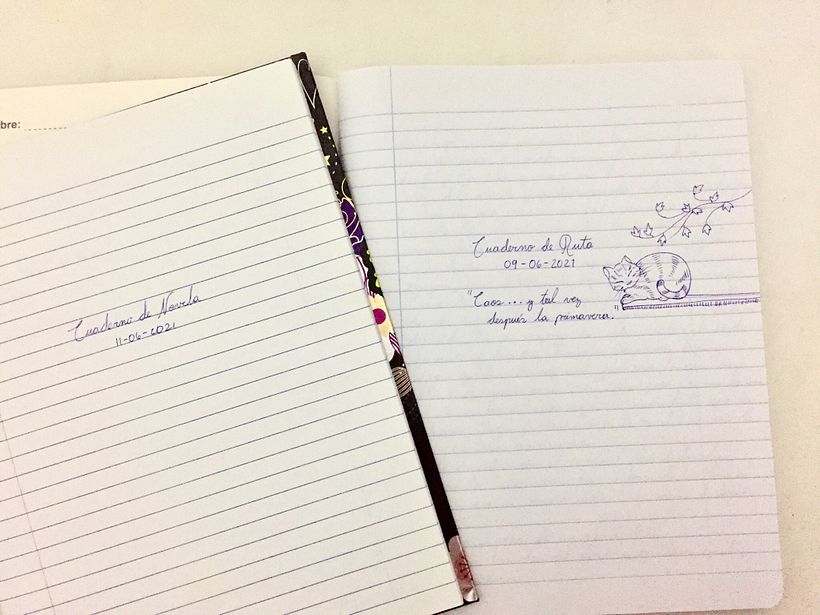 bre:
Cuaderno de Novela
11-06-2021
Cuaderno de Ruta
09-06-2021
"Caos... y tal vez
después la primavera."